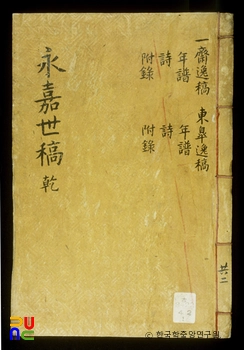 永嘉世稿 乾
一齋逸稿
年譜
詩
附錄
東皐逸稿
年譜
詩
附錄
共二
© 한국학중앙연구원